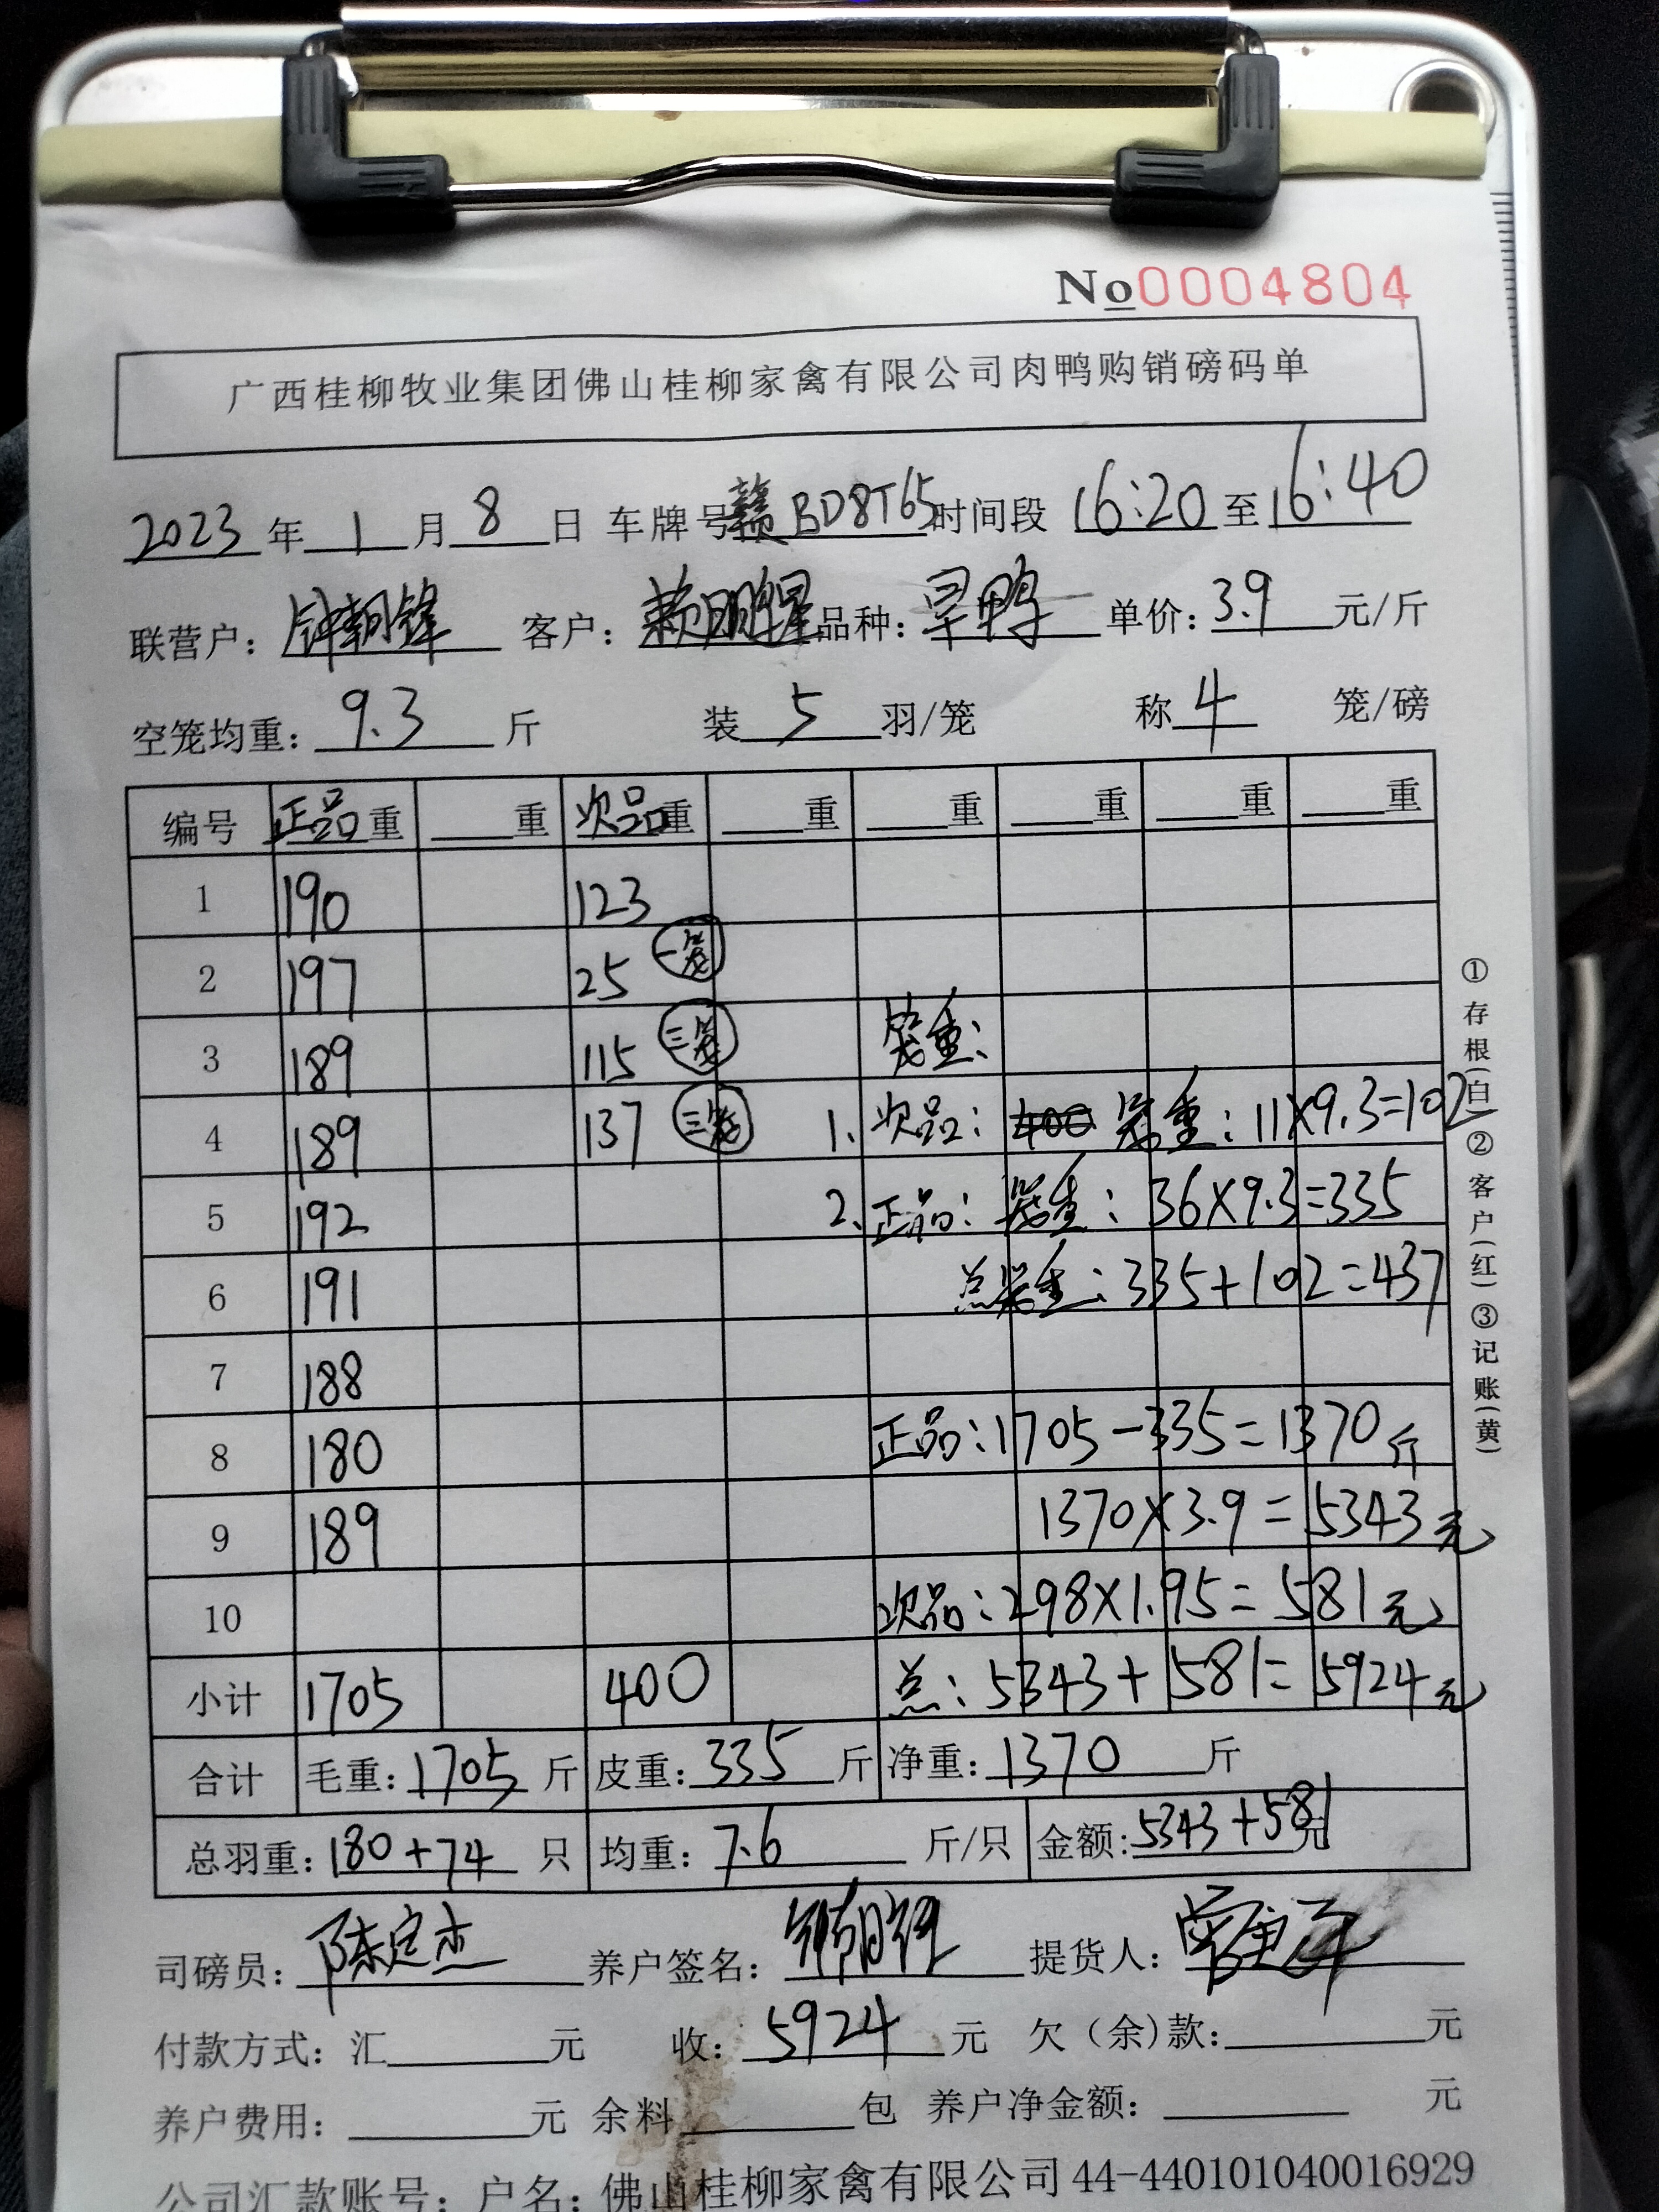 No 0004804
广西桂柳牧业集团佛山桂柳家禽有限公司肉鸭购销磅码单
2023年1月8日 车牌号赣BD8T65时间段 16:20至16:40
联营户：钟朝锋 客户：赖明星 品种：旱鸭 单价：3.9元/斤
空笼均重：9.3斤 装5羽/笼 称4笼/磅
编号 正品重 ____重 次品重 ____重 ____重 ____重 ____重 ____重
1 190 123
2 197 25 一笼
3 189 115 三笼 笼重：
4 189 137 三笼 1、次品： 400 笼重：11×9.3=102
5 192 2、正品：笼重：36×9.3=335
6 191 总笼重：335+102=437
7 188
8 180 正品：1705-335=1370斤
9 189 1370×3.9=5343元
10 次品：298×1.95=581元
小计 1705 400 总：5343+581=5924元
合计 毛重：1705斤 皮重：335斤 净重：1370斤
总羽重：180+74只 均重：7.6斤/只 金额：5343+581元
司磅员：陈定杰 养户签名： 提货人：
付款方式：汇____元 收：5924元 欠（余）款：____元
养户费用：____元 余料____包 养户净金额：____元
公司汇款账号：户名：佛山桂柳家禽有限公司 44-440101040016929
①存根(白)②客户(红)③记账(黄)